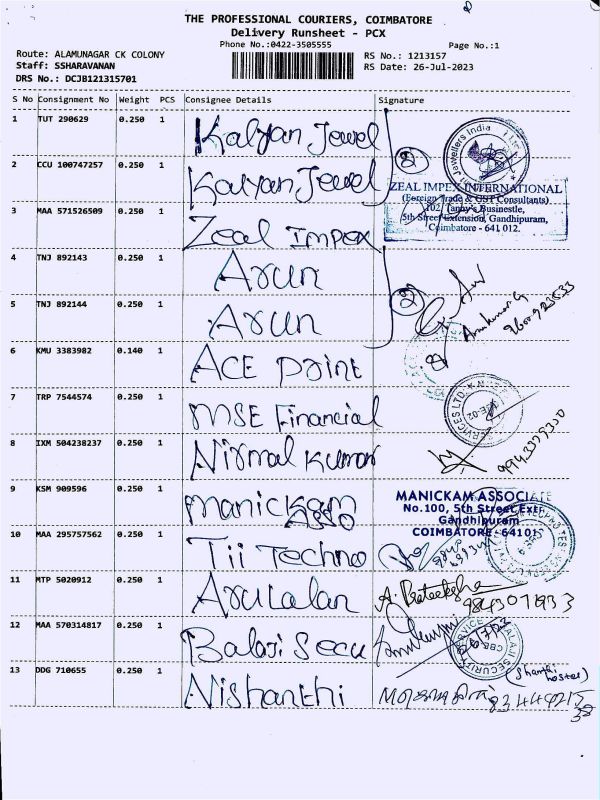 THE PROFESSIONAL COURIERS, COIMBATORE
Delivery Runsheet - PCX
Phone No.:0422-3505555
Page No.:1
Route: ALAMUNAGAR CK COLONY
RS No.: 1213157
Staff: SSHARAVANAN
RS Date: 26-Jul-2023
DRS No.: DCJB121315701
S No Consignment No Weight PCS Consignee Details Signature
1 TUT 290629 0.250 1 Kalyan Jewel
2 CCU 100747257 0.250 1 Kalyan Jewel
Jewellers India
ZEAL IMPEX INTERNATIONAL
(Foreign Trade & GST Consultants)
5th Street Extension, Gandhipuram,
Coimbatore - 641 012.
3 MAA 571526509 0.250 1 Zeal Impex
4 TNJ 892143 0.250 1 Arun
5 TNJ 892144 0.250 1 Arun
6 KMU 3383982 0.140 1 ACE Point
7 TRP 7544574 0.250 1 MSE Financial
8 IXM 504238237 0.250 1 Nirmal Kumar
9 KSM 909596 0.250 1 Manickam Asso
MANICKAM ASSOCIATE
No.100, 5th Street Extn
Gandhipuram
COIMBATORE - 64101
10 MAA 295757562 0.250 1 Tii Techno
11 MTP 5020912 0.250 1 Arulalan
12 MAA 570314817 0.250 1 Balaji Secu
BALAJI SECURITY SERVICE
CBE
13 DDG 710655 0.250 1 Nishanthi
(Shanthi
hostel)